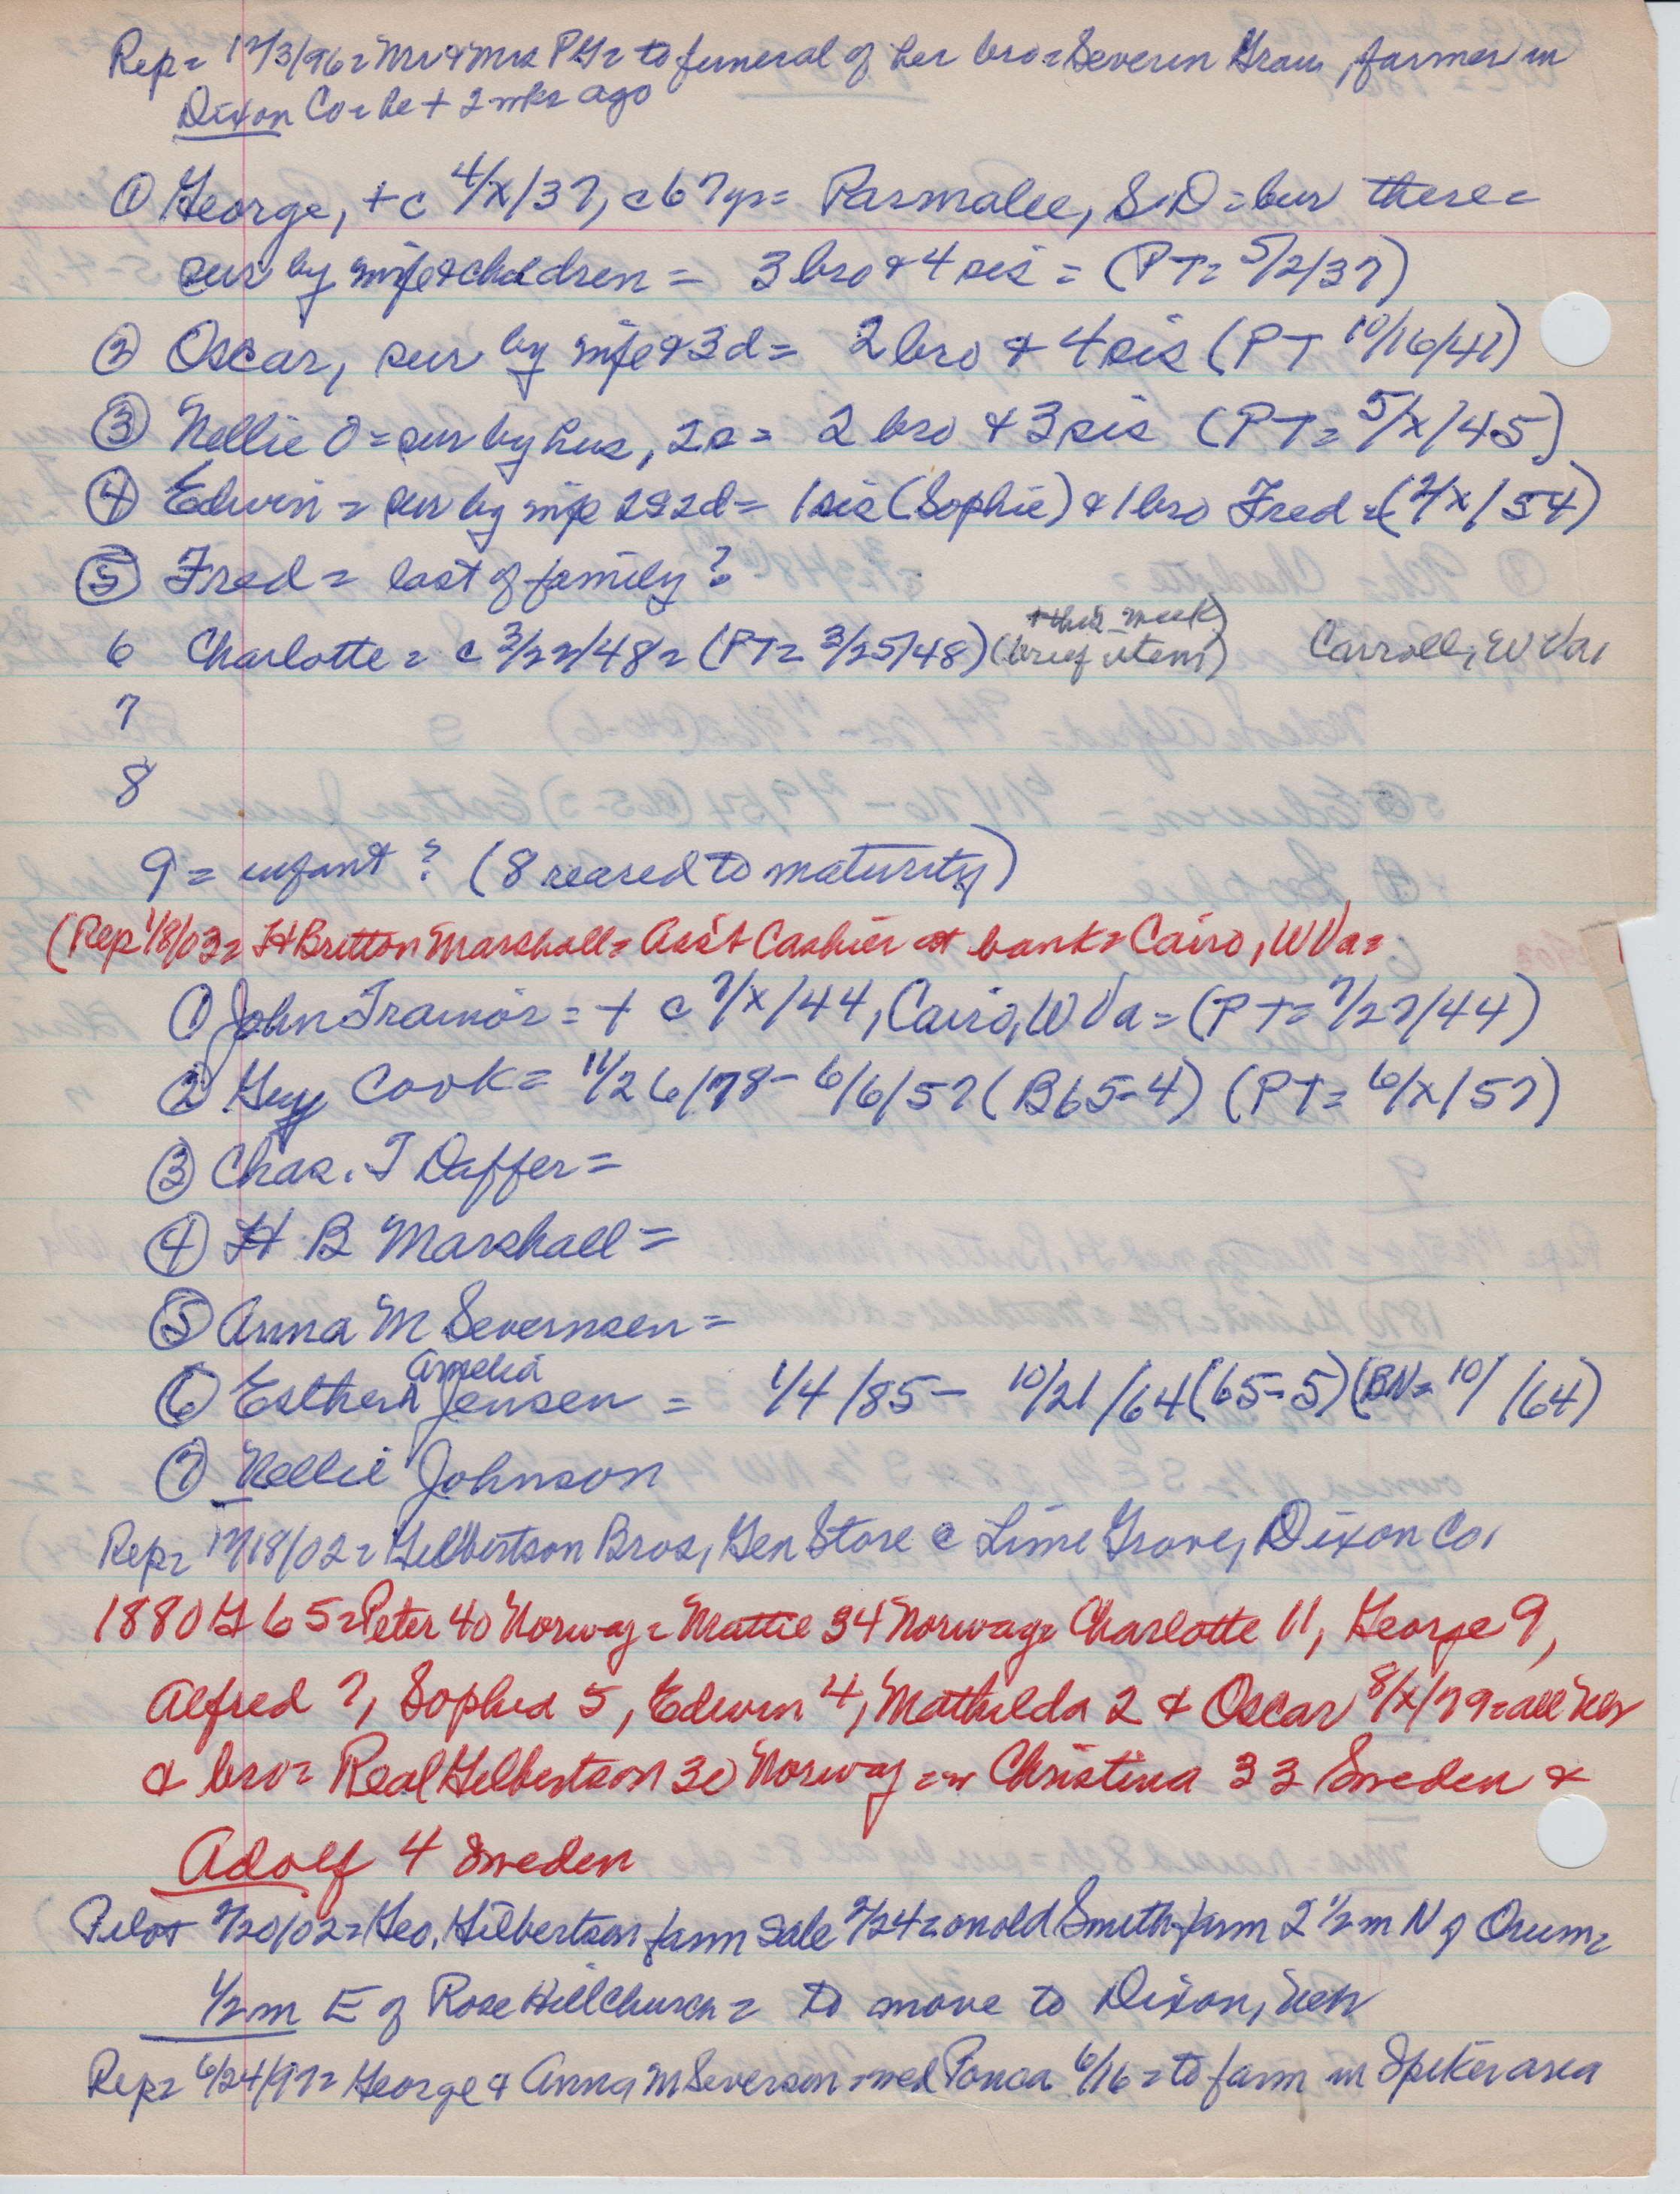 Rep = 12/3/96 = Mr & Mrs PG = to funeral of her bro = Severin Grau, farmer in
Dixon Co = he + 2 wks ago
① George, + c 4/x/37, c 67 yrs = Parmalee, S.D = bur there =
sur by wife & children = 3 bro & 4 sis = (PT = 5/2/37)
② Oscar, sur by wife & 3d = 2 bro & 4 sis (PT 10/16/41)
③ Nellie O = sur by hus, 2s = 2 bro & 3 sis (PT = 5/x/45)
④ Edwin = sur by wife 2s 2d = 1 sis (Sophie) & 1 bro Fred = (2/x/54)
⑤ Fred = last of family?
+ this week
6 Charlotte = c 3/22/48 = (PT = 3/25/48) (brief item) Carroll, W Va,
7
8
9 = infant? (8 reared to maturity)
(Rep 1/8/03 = H Britton Marshall = Ass't Cashier at bank = Cairo, W Va =
① John Trainor = + c 7/x/44, Cairo, W Va = (PT = 7/27/44)
② Guy Cook = 11/26/78 - 6/6/57 (B65-4) (PT = 6/x/57)
③ Chas. T Daffer =
④ H B Marshall =
⑤ Anna M Severnsen =
Amelia
⑥ Esther A Jensen = 1/4/85 - 10/21/64 (65-5) (BN = 10/ /64)
⑦ Nellie Johnson
Rep = 12/18/02 = Gilbertson Bros, Gen Store c Lime Grove, Dixon Co,
1880 G 65 = Peter 40 Norway = Mattie 34 Norway = Charlotte 11, George 9,
Alfred 7, Sophia 5, Edwin 4, Mathilda 2 & Oscar 8/x/79 = all Neb
& bro = Real Gilbertson 30 Norway = w Christina 33 Sweden &
Adolf 4 Sweden
Pilot 2/20/02 = Geo. Gilbertson farm sale 2/24 = on old Smith farm 2 1/2 m N of Orum =
1/2 m E of Rose Hill Church = to move to Dixon, Neb
Rep = 6/24/97 = George & Anna M Severson = wed Ponca 6/16 = to farm in Spiker area